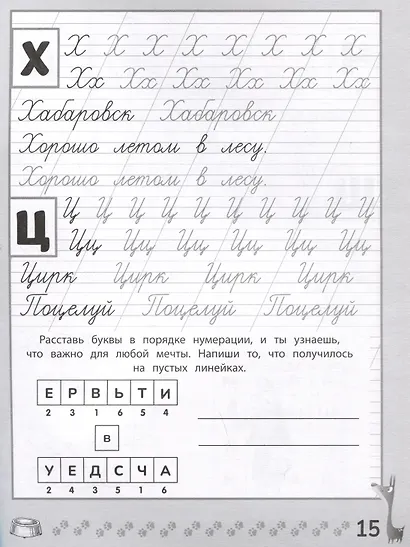 Х Х Х Х Х Х Х Х Х
Хх Хх Хх Хх Хх Хх Хх
Хабаровск Хабаровск
Хорошо летом в лесу.
Хорошо летом в лесу.
Ц Ц Ц Ц Ц Ц Ц Ц Ц Ц Ц
Цц Цц Цц Цц Цц Цц Цц
Цирк Цирк Цирк Цирк
Поцелуй Поцелуй Поцелуй
Расставь буквы в порядке нумерации, и ты узнаешь,
что важно для любой мечты. Напиши то, что получилось
на пустых линейках.
Е Р В Ь Т И
2 3 1 6 5 4
в
У Е Д С Ч А
2 4 3 5 1 6
15